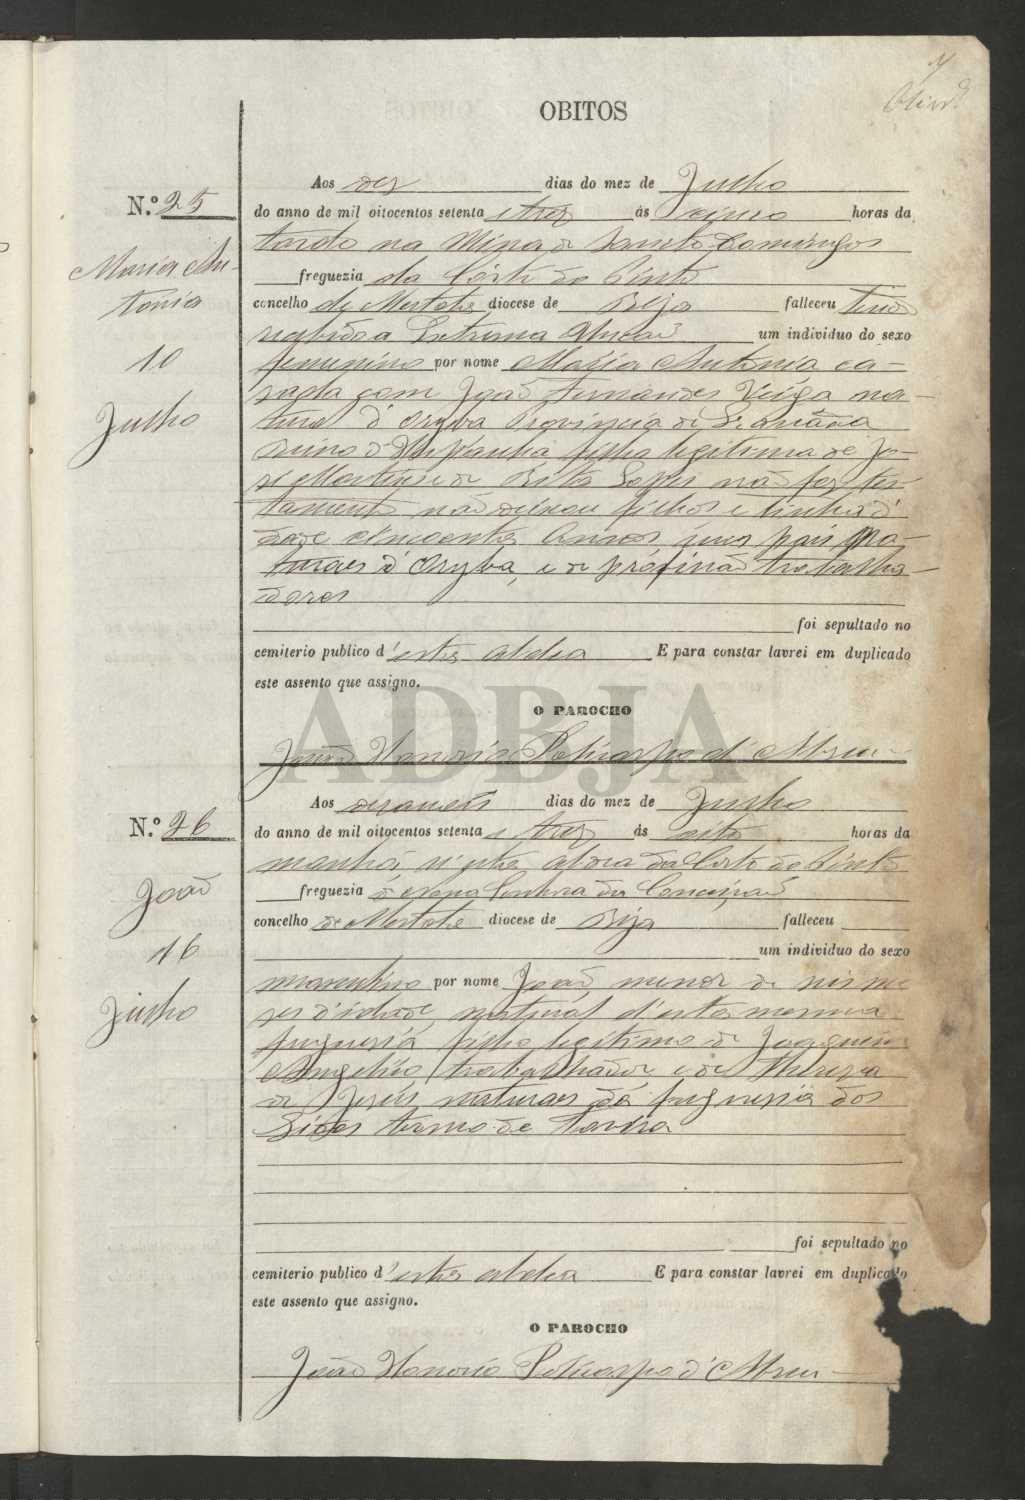 OBITOS
N.º 25
Maria An-
tonia
10
Julho
Aos dez dias do mez de Julho
do anno de mil oitocentos setenta e trez ás cinco horas da
tarde na Mina de Sancto Domingos
freguezia da Côrte do Pinto
concelho de Mertola diocese de Beja falleceu tendo
recebido a Extrema Unção um individuo do sexo
femenino por nome Maria Antonia ca-
sada com João Fernandes Veiga na-
tural d'
Reino d'Hispanha filha legitima de Jo-
sé Martins e de Rita Lopes não fez tes-
tamento não deixou filhos e tinha d'
idade cincoenta annos, seus pais na-
turaes d' e de profissão trabalha-
dores
foi sepultado no
cemiterio publico d'esta aldea E para constar lavrei em duplicado
este assento que assigno.
O PAROCHO
João Honorio Policarpo d'Abreu
ADBJA
N.º 26
João
16
Julho
Aos dezaseis dias do mez de Julho
do anno de mil oitocentos setenta e trez ás oito horas da
manhã, n'esta aldea da Corte do Pinto
freguezia de Nossa Senhora da Conceição
concelho de Mertola diocese de Beja falleceu
um individuo do sexo
masculino por nome João menor de seis me
zes d'idade, natural d'esta mesma
freguezia filho legitimo de Joaquim
trabalhador e de Thereza
de Jesus naturaes da freguezia dos
termo de Tavira
foi sepultado no
cemiterio publico d'esta aldea E para constar lavrei em duplicado
este assento que assigno.
O PAROCHO
João Honorio Policarpo d'Abreu